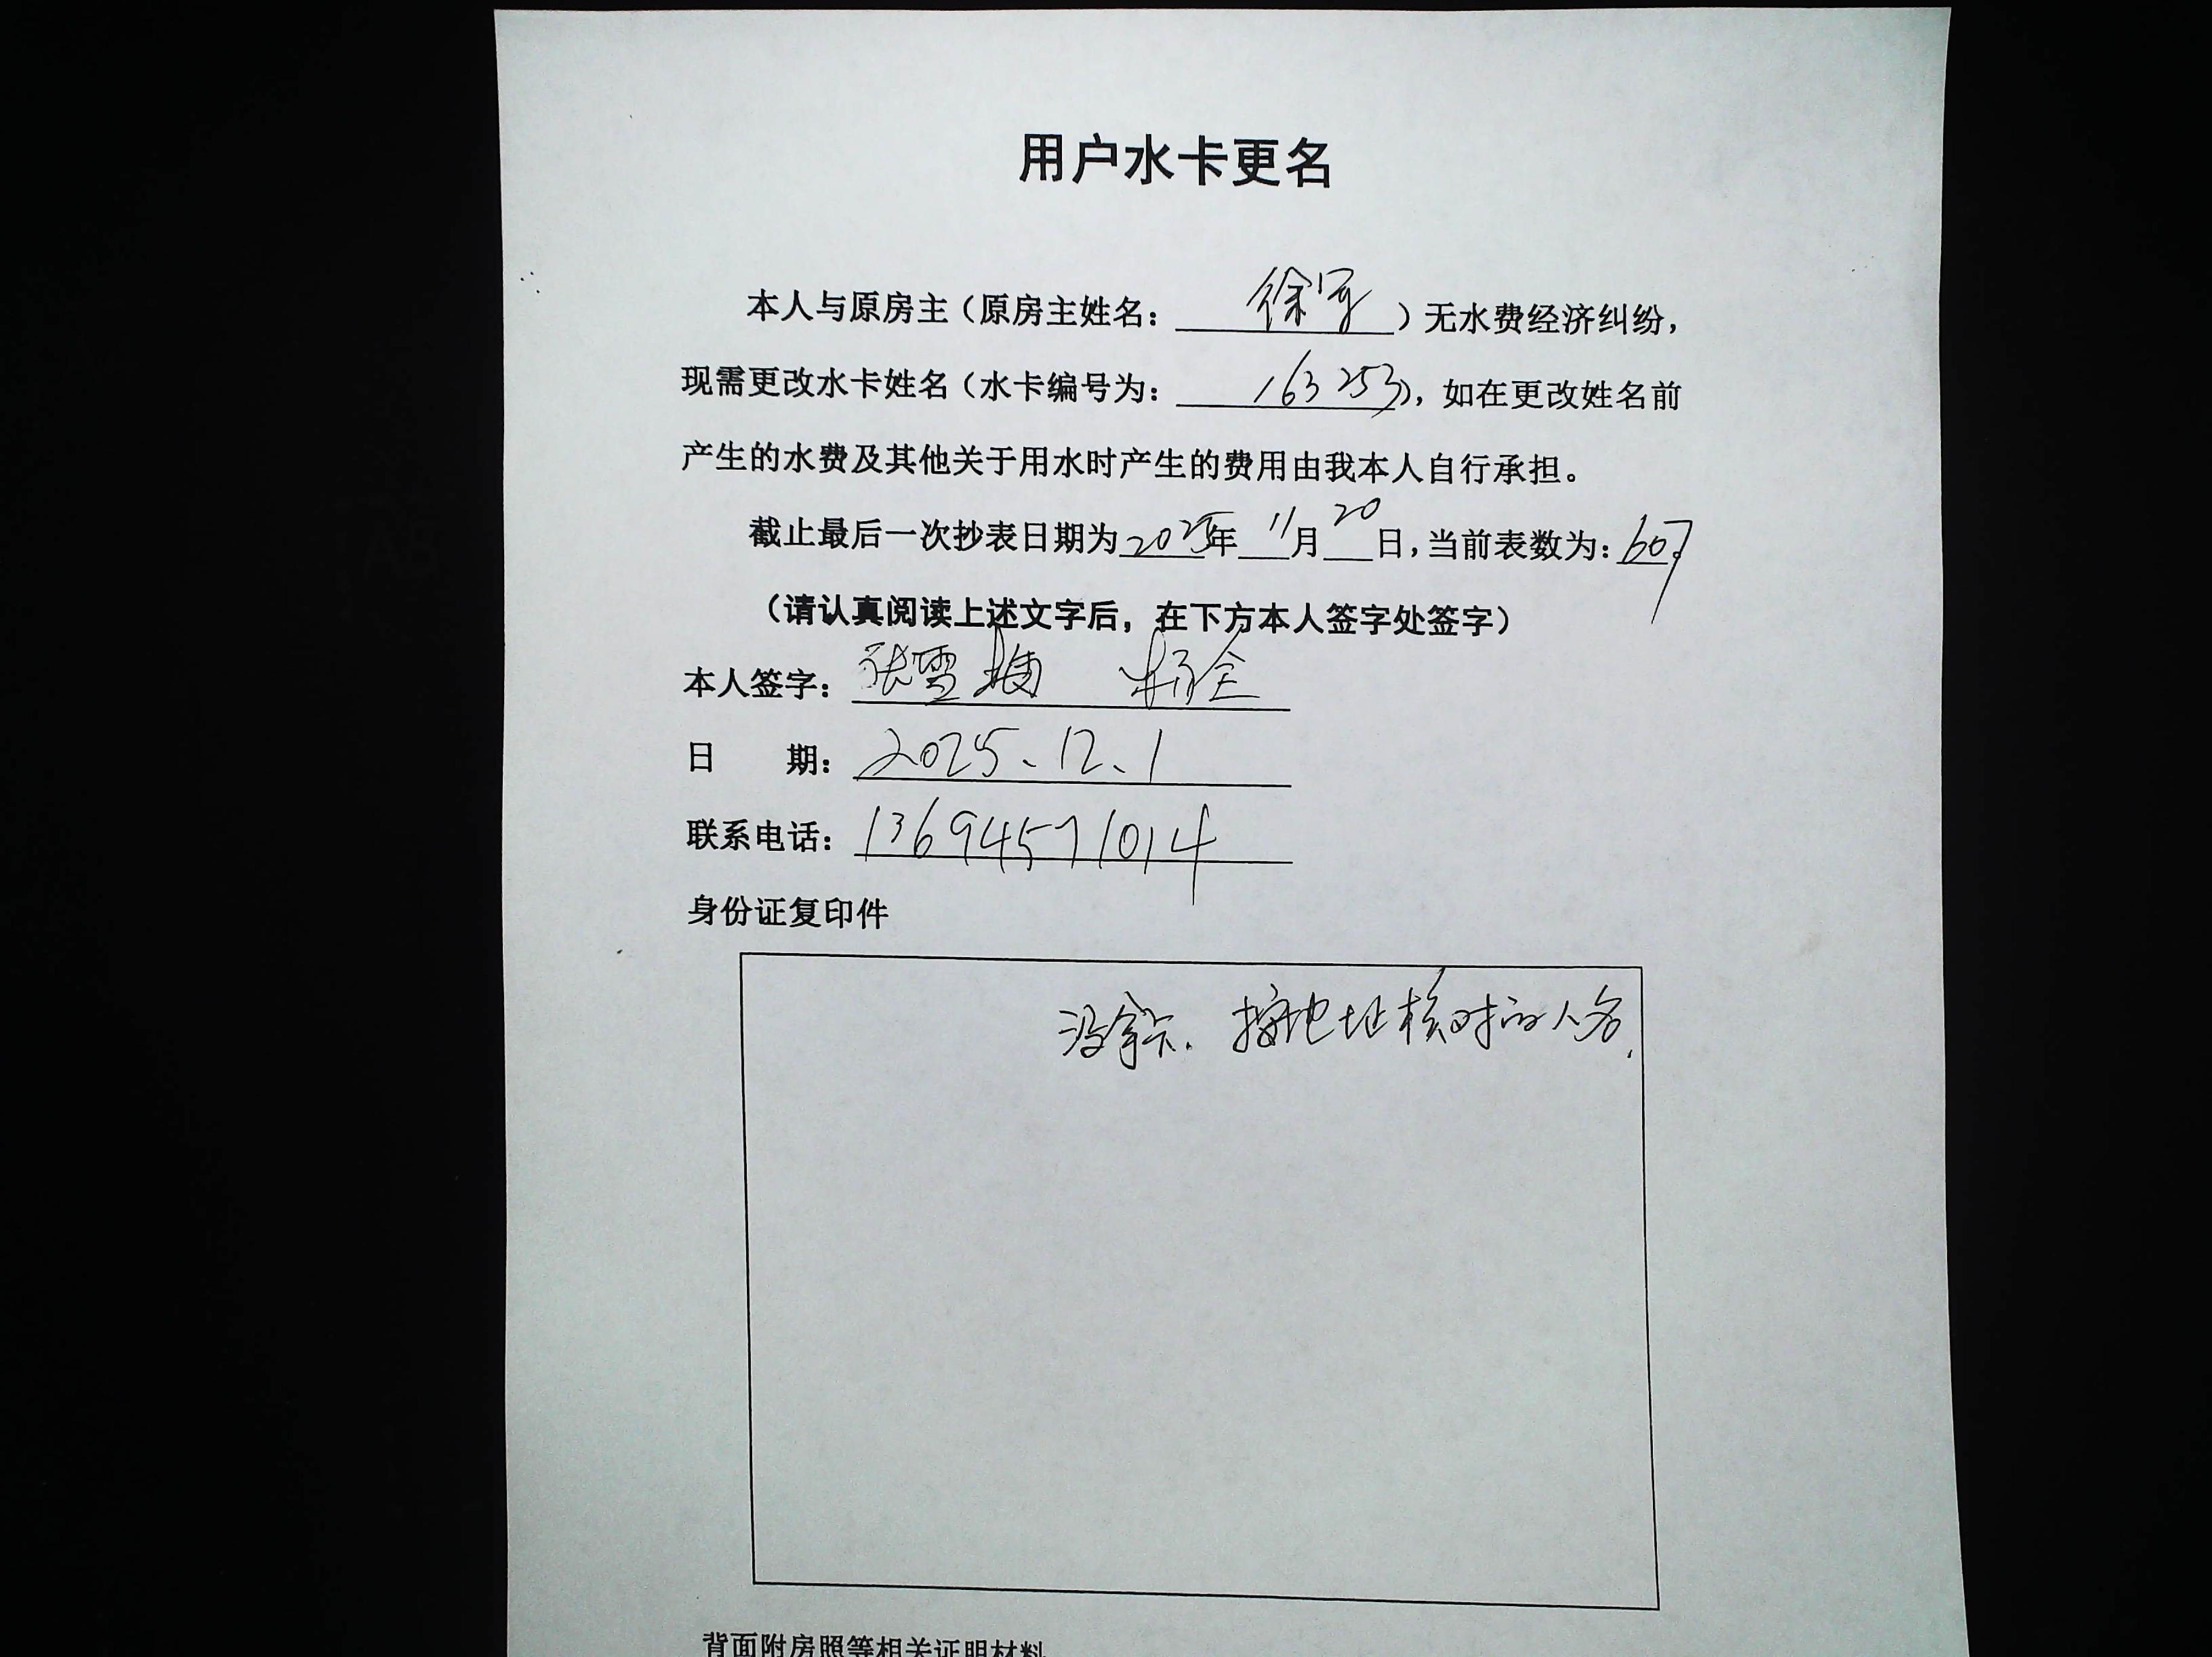 用户水卡更名
本人与原房主（原房主姓名：徐军）无水费经济纠纷，
现需更改水卡姓名（水卡编号为：163253），如在更改姓名前
产生的水费及其他关于用水时产生的费用由我本人自行承担。
截止最后一次抄表日期为2025年11月20日，当前表数为：607
（请认真阅读上述文字后，在下方本人签字处签字）
本人签字：张雪梅 杨全
日 期：2025、12、1
联系电话：13694571014
身份证复印件
没拿卡. 按地址核对的人名.
背面附房照等相关证明材料